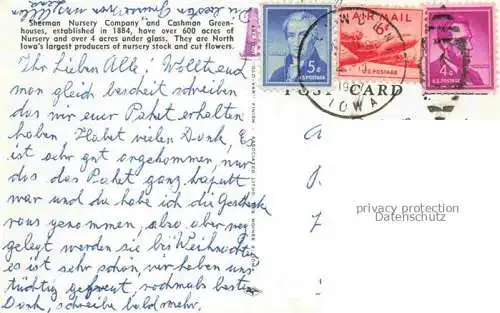 Sherman Nursery Company and Cashman Green-
houses, established in 1884, have over 600 acres of
Nursery and over 4 acres under glass. They are North
Iowa's largest producers of nursery stock and cut flowers.
Ihr Lieben Alle! Wollt euch
man gleich bescheit schreiben
das mir euer Paket erhalten
haben Habet vielen Dank, Es
ist sehr gut angekommen nur
das das Paket ganz kaputt
war und du habe ich die Geschenke
raus genommen, also aber weg
gelegt werden sie bis Weihnachten
es ist sehr schön, wir haben uns
tüchtig gefreut, nochmals besten
Dank, schreibe bald mehr.
5¢
U.S. POSTAGE
AIR MAIL
6¢
U.S. POSTAGE
4¢
U.S. POSTAGE
IOWA
POST CARD
privacy protection
Datenschutz